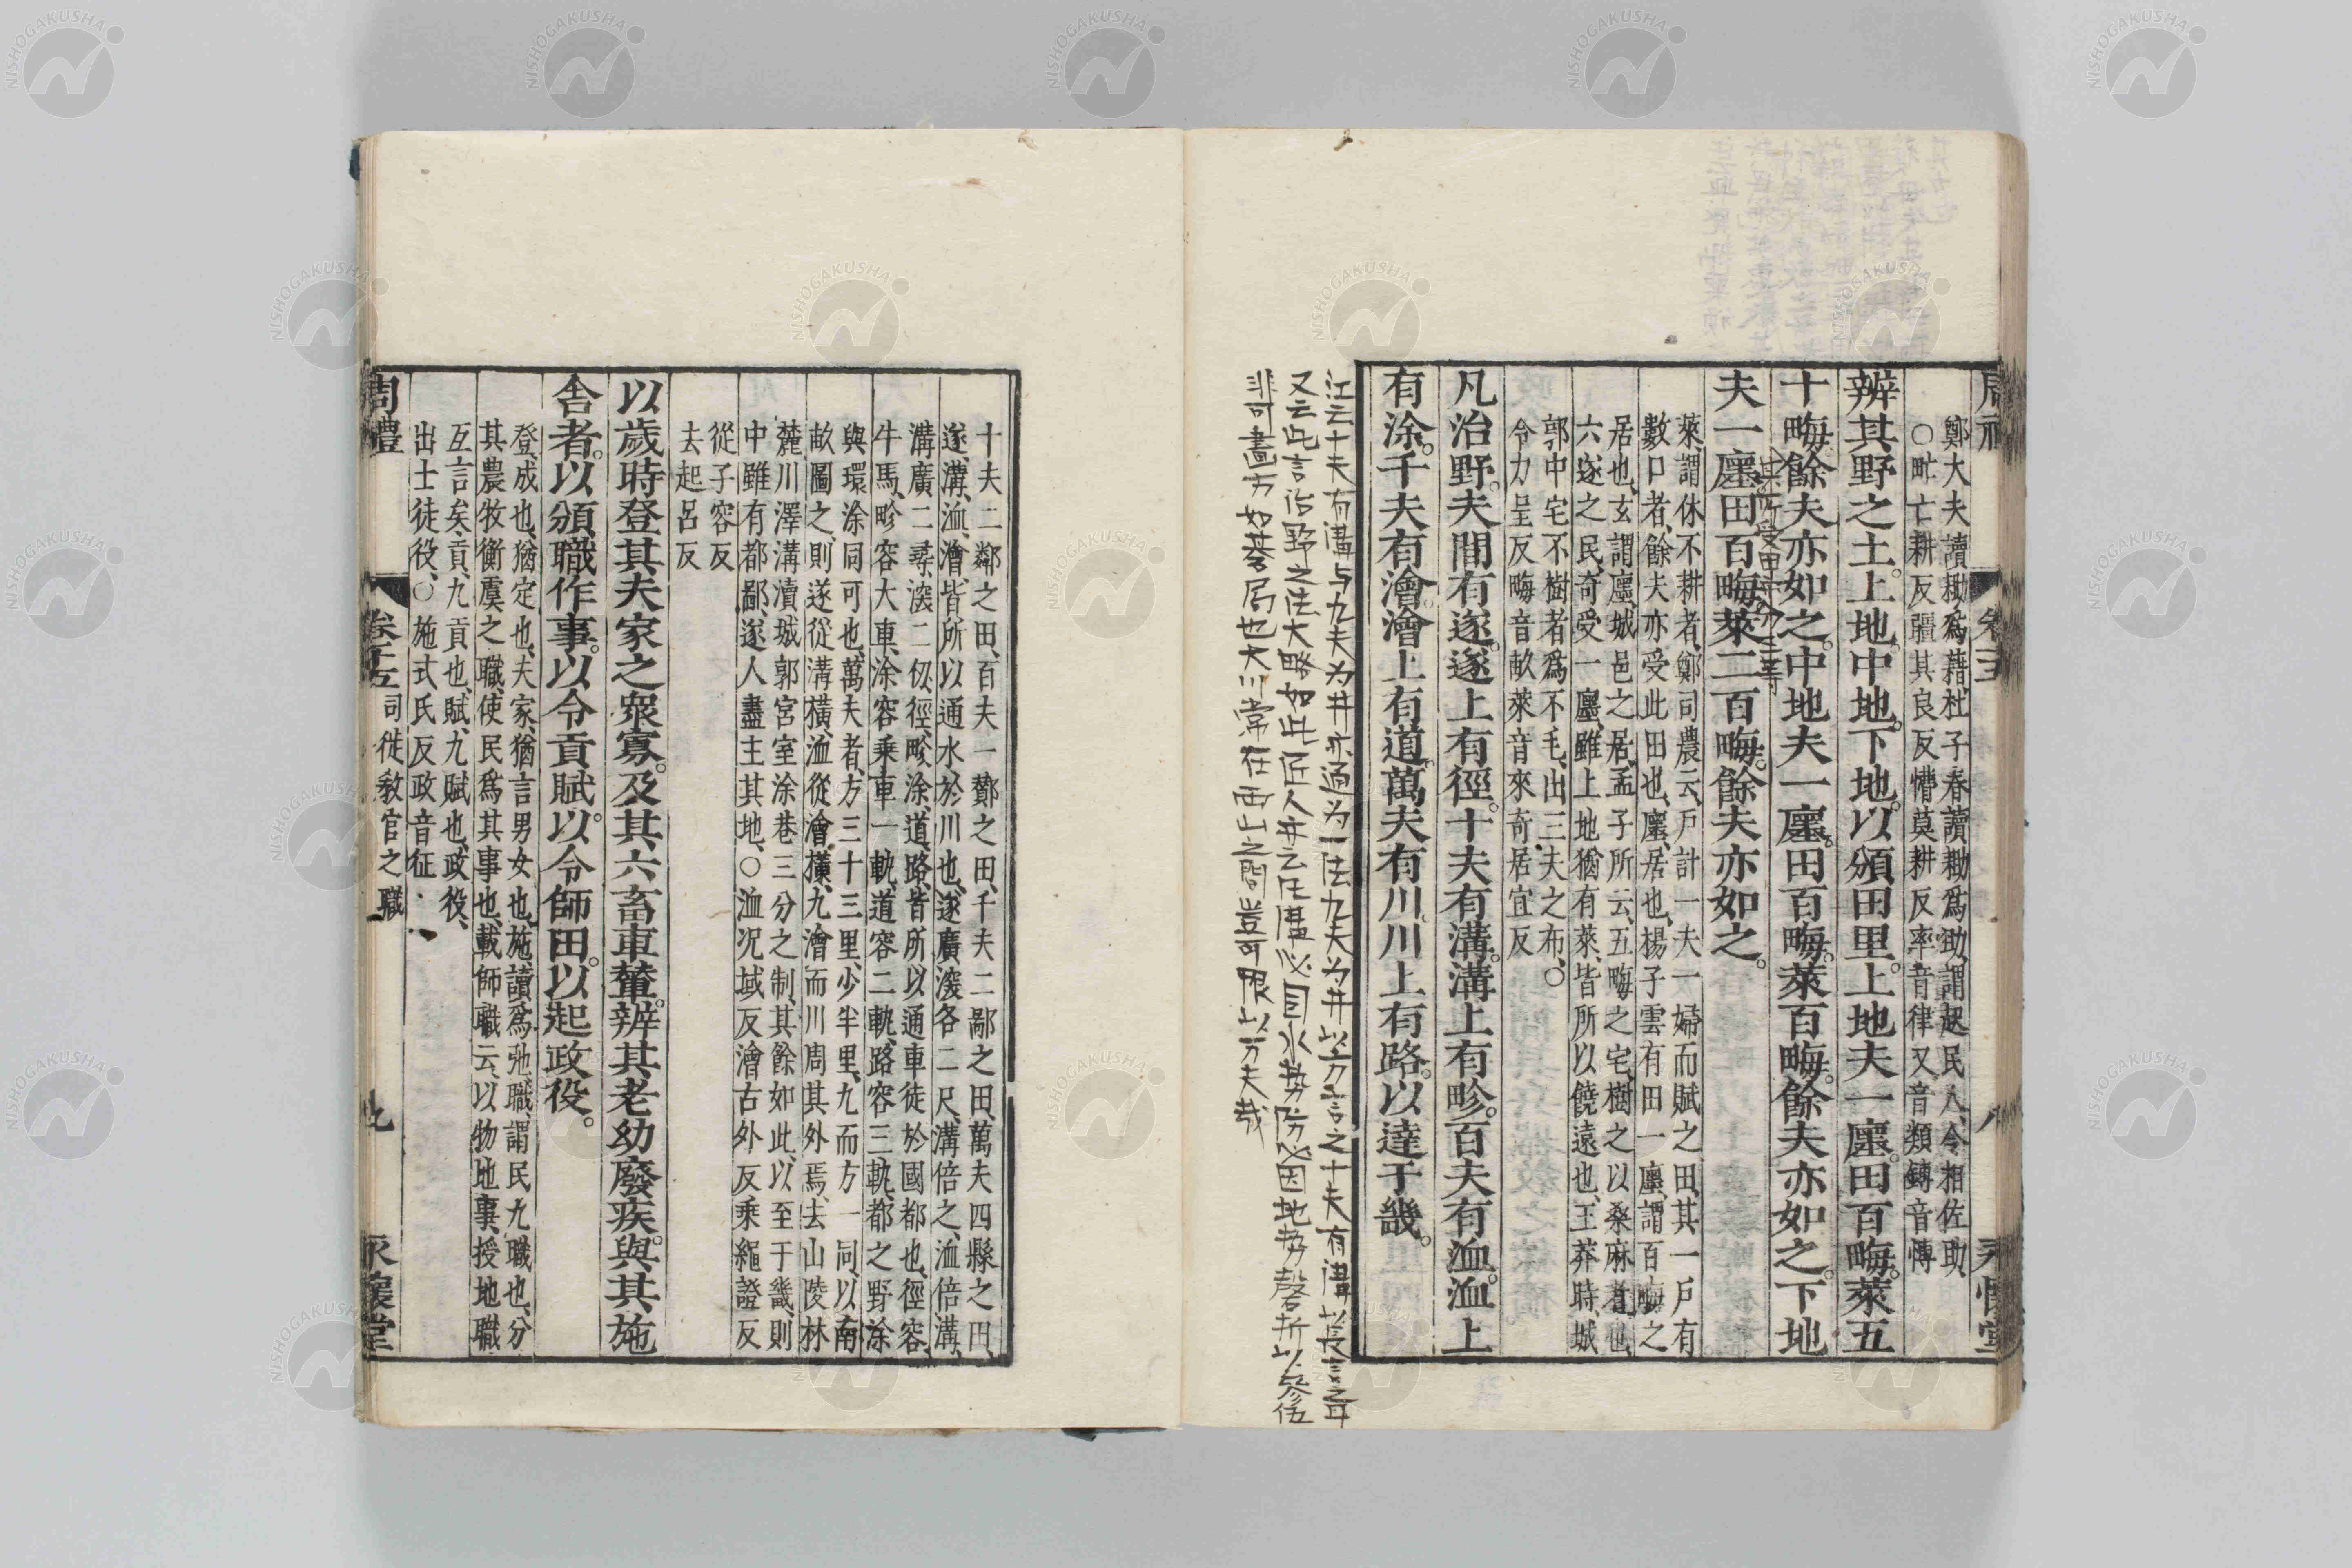 鄭大夫讀耡爲藉杜子春讀耡爲助謂起民人令相佐助
○甿亡耕反疆其良反懵莫耕反率音律又音類鏄音博
辨其野之土上地中地下地以頒田里上地夫一廛田百畮萊五
十畮餘夫亦如之中地夫一廛田百畮萊百畮餘夫亦如之下地
夫一廛田百畮萊二百畮餘夫亦如之
萊謂休不耕者鄭司農云戶計一夫一婦而賦之田其一戶有
數口者餘夫亦受此田也廛居也楊子雲有田一廛謂百畮之
居也玄謂廛城邑之居孟子所云五畮之宅樹之以桑麻者也
六遂之民奇受一廛雖上地猶有萊皆所以饒遠也王莽時城
郭中宅不樹者爲不毛出三夫之布○
令力呈反畮音畝萊音來奇居宜反
凡治野夫間有遂遂上有徑十夫有溝溝上有畛百夫有洫洫上
有涂千夫有澮澮上有道萬夫有川川上有路以達于畿
江云十夫有溝与九夫为井亦通为一法九夫为井以方言之十夫有溝以長言之耳
又云此言治野之法大略如此匠人亦云凡溝必因水勢防必因地勢磬折以參伍
非可畫方如棊局也大川常在兩山之間豈可限以万夫哉
十夫二鄰之田百夫一酇之田千夫二鄙之田萬夫四縣之田
遂溝洫澮皆所以通水於川也遂廣深各二尺溝倍之洫倍溝
溝廣二尋深二仞徑畛涂道路皆所以通車徒於國都也徑容
牛馬畛容大車涂容乘車一軌道容二軌路容三軌都之野涂
與環涂同可也萬夫者方三十三里少半里九而方一同以南
畝圖之則遂從溝橫洫從澮橫九澮而川周其外焉去山陵林
麓川澤溝瀆城郭宮室涂巷三分之制其餘如此以至于畿則
中雖有都鄙遂人盡主其地○洫况域反澮古外反乘繩證反
從子容反
去起呂反
以歲時登其夫家之衆寡及其六畜車輦辨其老幼廢疾與其施
舍者以頒職作事以令貢賦以令師田以起政役
登成也猶定也夫家猶言男女也施讀爲弛職謂民九職也分
其農牧衡虞之職使民爲其事也載師職云以物地事授地職
互言矣貢九貢也賦九賦也政役
出士徒役○施式氏反政音征
周禮 卷十五 司徒敎官之職 九 永懷堂